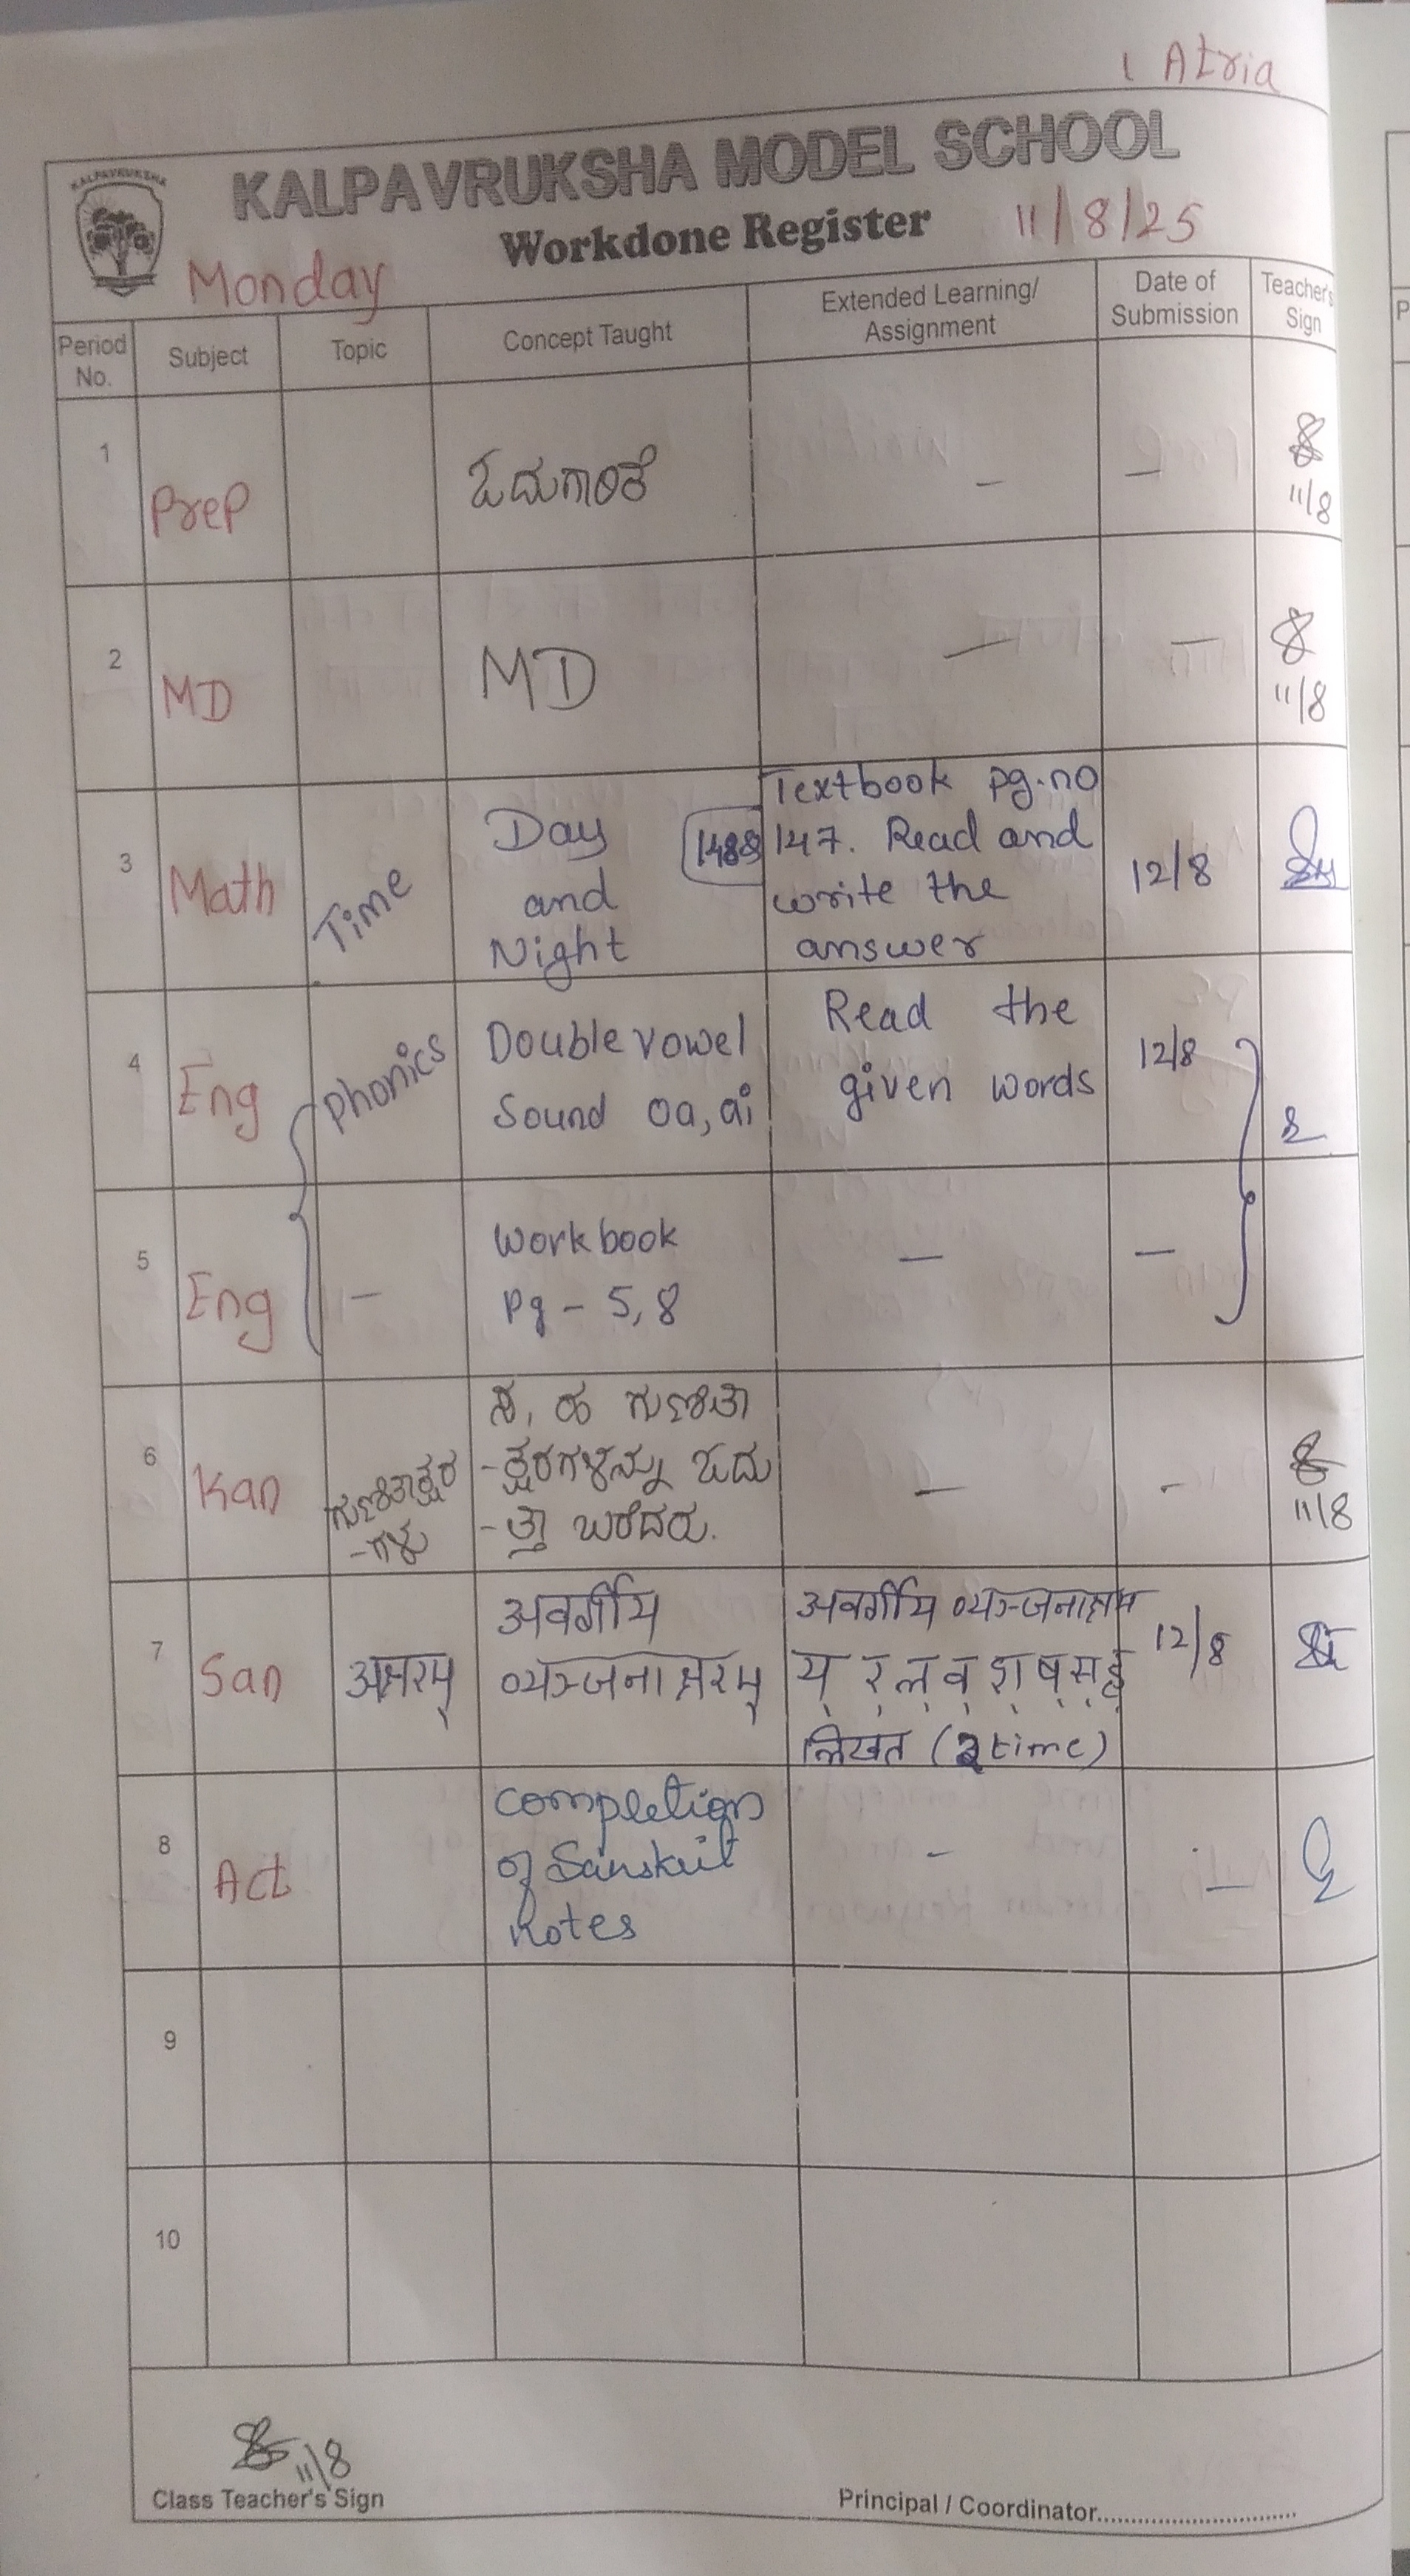 1 Atria
KALPAVRUKSHA
KALPAVRUKSHA MODEL SCHOOL
Workdone Register 11/8/25
Monday
Period No. Subject Topic Concept Taught Extended Learning/ Assignment Date of Submission Teacher's Sign
1 Prep ಓದುಗಾರಿಕೆ – – 11/8
2 MD MD – – 11/8
3 Math Time Day and Night 148& Textbook pg.no 147. Read and write the answer 12/8
4 Eng Phonics Double vowel Sound oa, ai Read the given words 12/8
5 Eng – Workbook Pg – 5, 8 – –
6 Kan ಗುಣಿತಾಕ್ಷರ
-ಗಳು
ಸ, ಹ ಗುಣಿತಾ
-ಕ್ಷರಗಳನ್ನು ಓದು
-ತ್ತಾ ಬರೆದರು.
– – 11/8
7 San अक्षरम्
अवर्गीय
व्यञ्जनाक्षरम्
अवर्गीय व्यञ्जनाक्षरम्
य् र् ल् व् श् ष् स् ह्
लिखत (2 time)
12/8
8 Act Completion of Sanskrit notes – –
9
10
11/8
Class Teacher's Sign Principal / Coordinator..............................